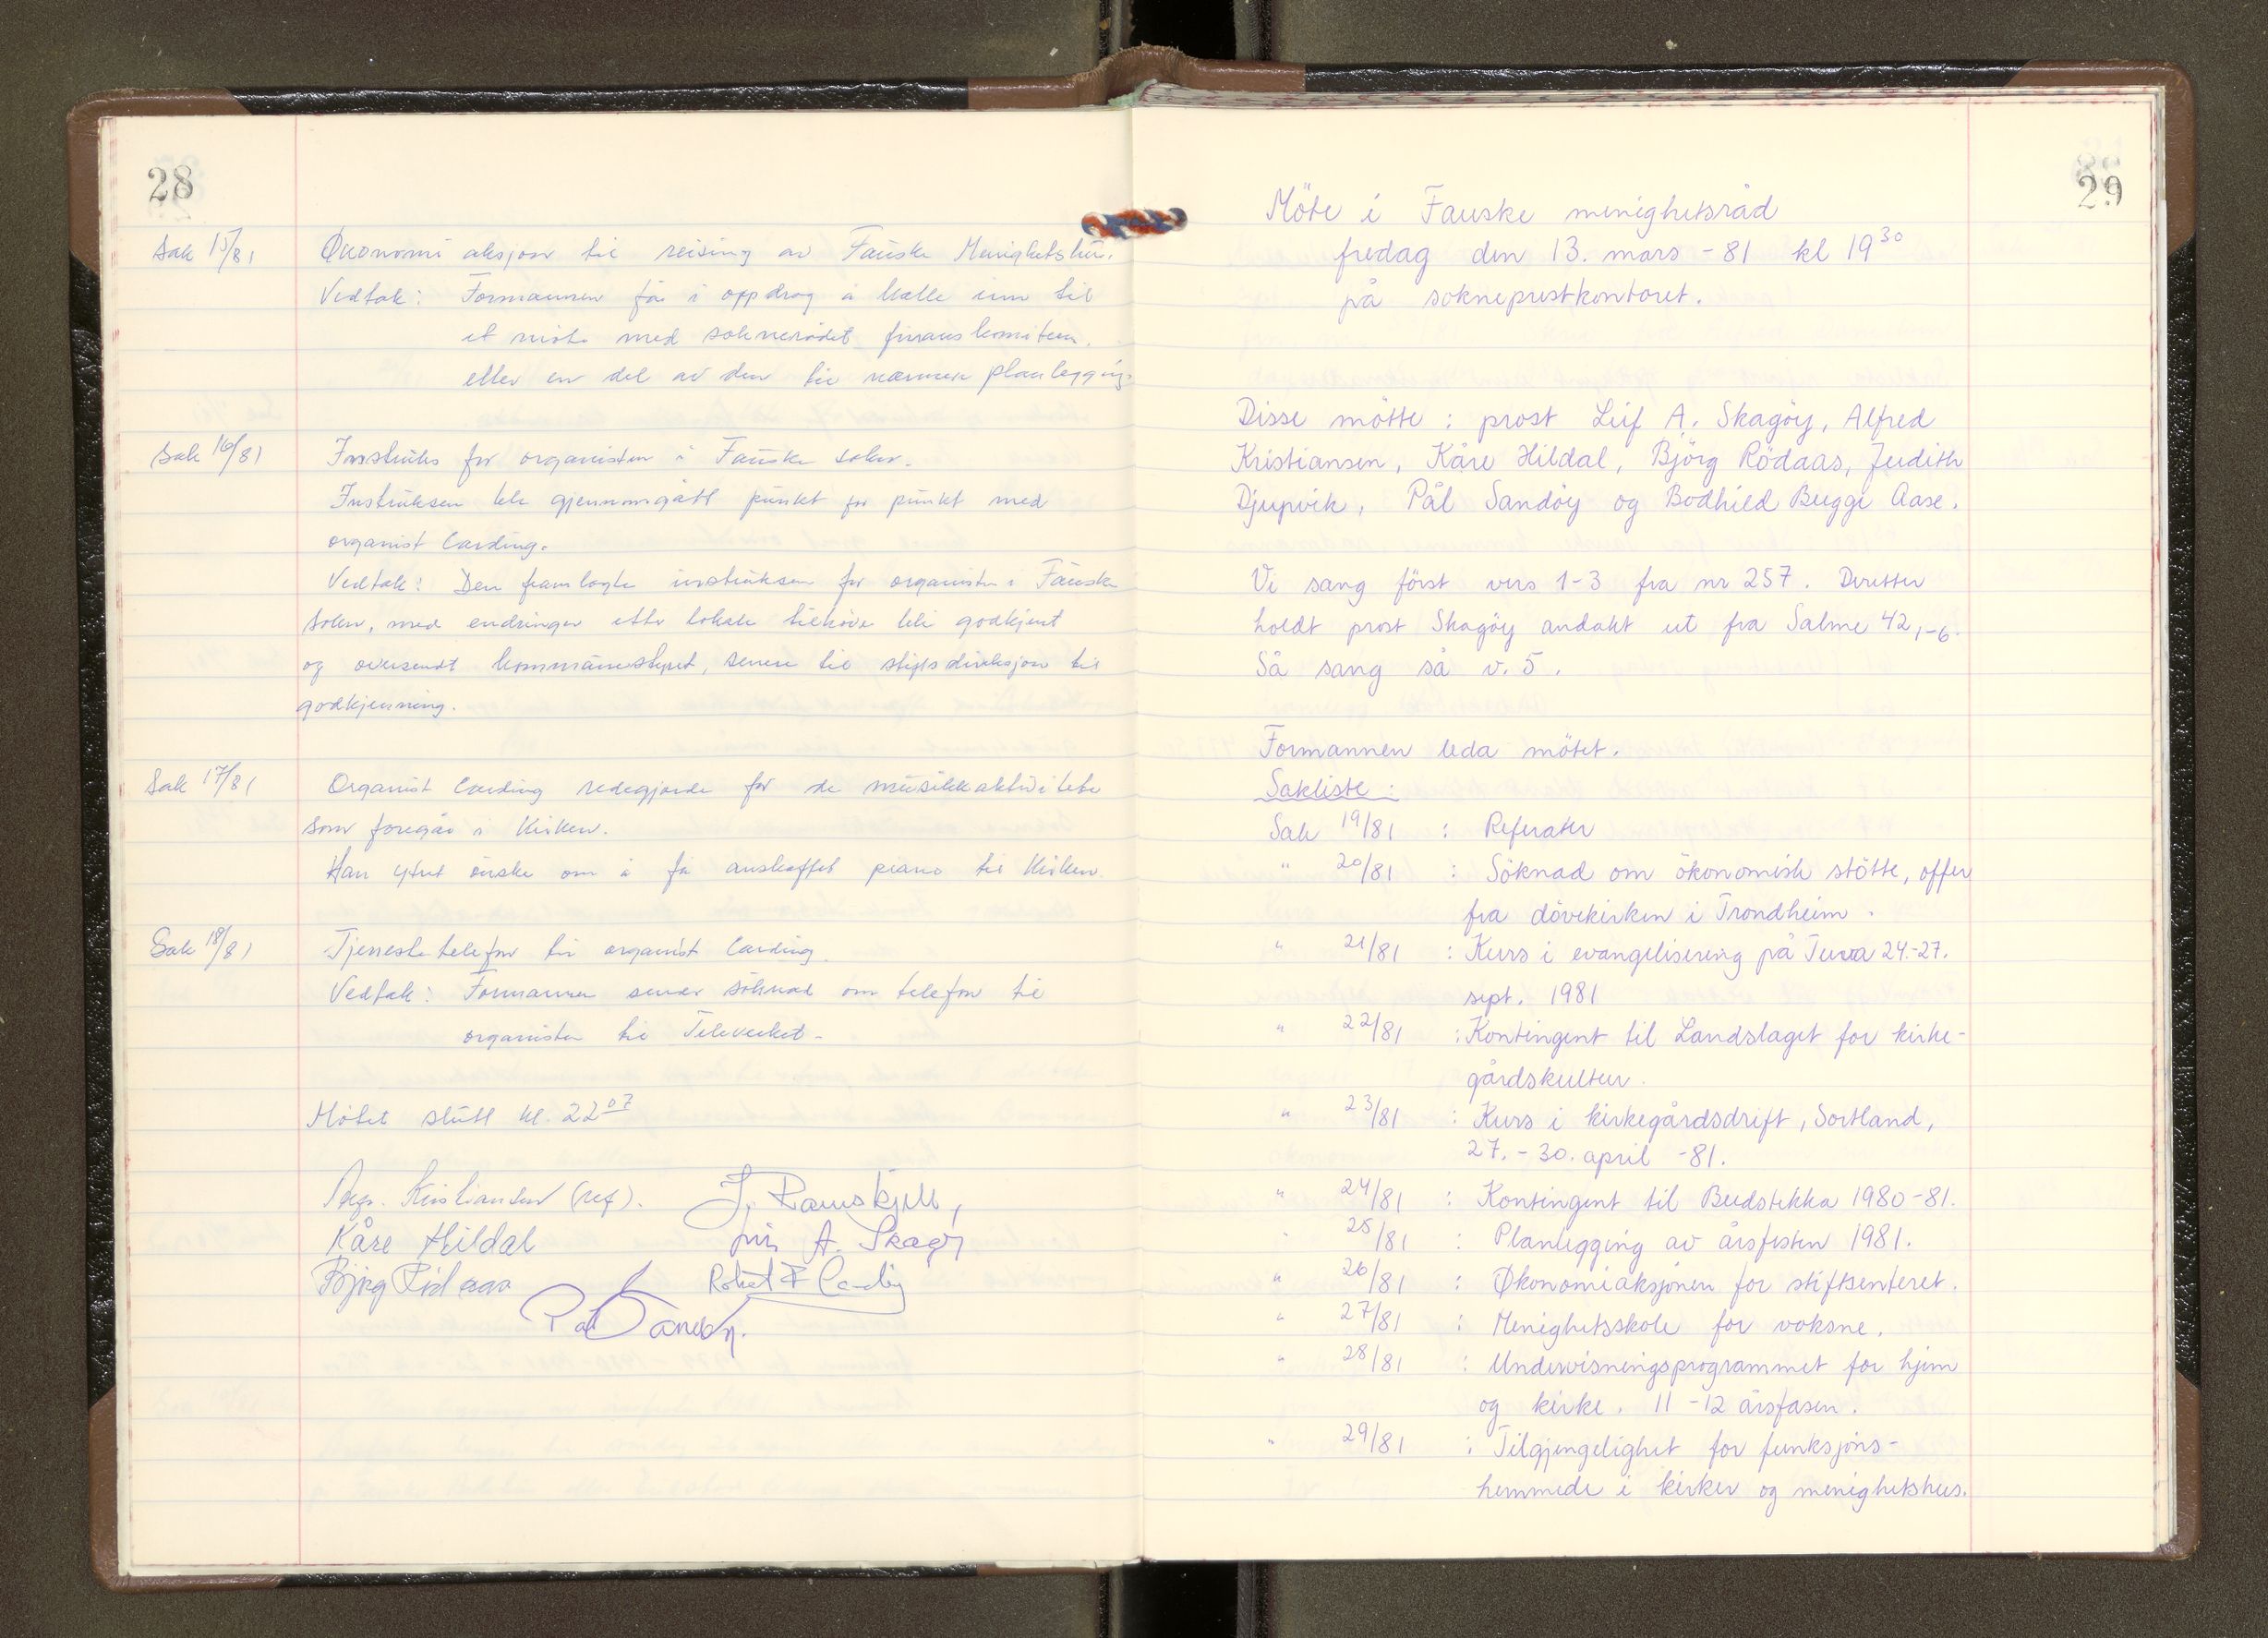 28
Sak 15/81 Økonomi aksjon til reising av Fauske Menighetshus.
Vedtak: Formannen får i oppdrag å kalle inn til
et møte med soknerådet finanskomiteen.
eller en del av den til nærmere planlegging.
Sak 16/81 Instruks for organisten i Fauske sokn.
Instruksen ble gjennomgått punkt for punkt med
organist Carding.
Vedtak: Den framlagte instruksen for organisten i Fauske
sokn, med endringer etter lokale tilhøve ble godkjent
og oversendt kommunestyret, senere til stiftsdireksjon til
godkjenning.
Sak 17/81 Organist Carding redegjorde for de musikkaktiviteter
som foregår i Kirken.
Han ytret ønske om å få anskaffet piano til Kirken.
Sak 18/81 Tjenestetelefon til organist Carding.
Vedtak: Formannen sender söknad om telefon til
organisten til Televerket.
Møtet slutt kl. 22 07
Kristiansen (ref). J. Ramskjell,
Kåre Hildal A. Skagöy
Bjørg Rödaas Robert F Carding
Pål Sandöy.
29
Möte i Fauske menighetsråd
fredag den 13. mars -81 kl 19 30
på sokneprestkontoret.
Disse mötte : prost Leif A. Skagöy, Alfred
Kristiansen, Kåre Hildal, Björg Rödaas, Judith
Djupvik, Pål Sandöy og Bodhild Bugge Aase.
Vi sang först vers 1-3 fra nr 257. Deretter
holdt prost Skagöy andakt ut fra Salme 42,1-6.
Så sang så v. 5.
Formannen leda mötet.
Sakliste :
Sak 19/81 : Referater
" 20/81 : Söknad om ökonomisk stötte, offer
fra dövekirken i Trondheim.
" 21/81 : Kurs i evangelisering på Tuva 24.-27.
sept. 1981
" 22/81 : Kontingent til Landslaget for kirke-
gårdskultur.
" 23/81 : Kurs i kirkegårdsdrift, Sortland,
27. - 30. april -81.
" 24/81 : Kontingent til Budstikka 1980-81.
" 25/81 : Planlegging av årsfesten 1981.
" 26/81 : Økonomiaksjonen for stiftsenteret.
" 27/81 : Menighetsskole for voksne.
" 28/81 : Undervisningsprogrammet for hjem
og kirke. 11 -12 årsfasen.
" 29/81 : Tilgjengelighet for funksjons-
hemmede i kirker og menighetshus.